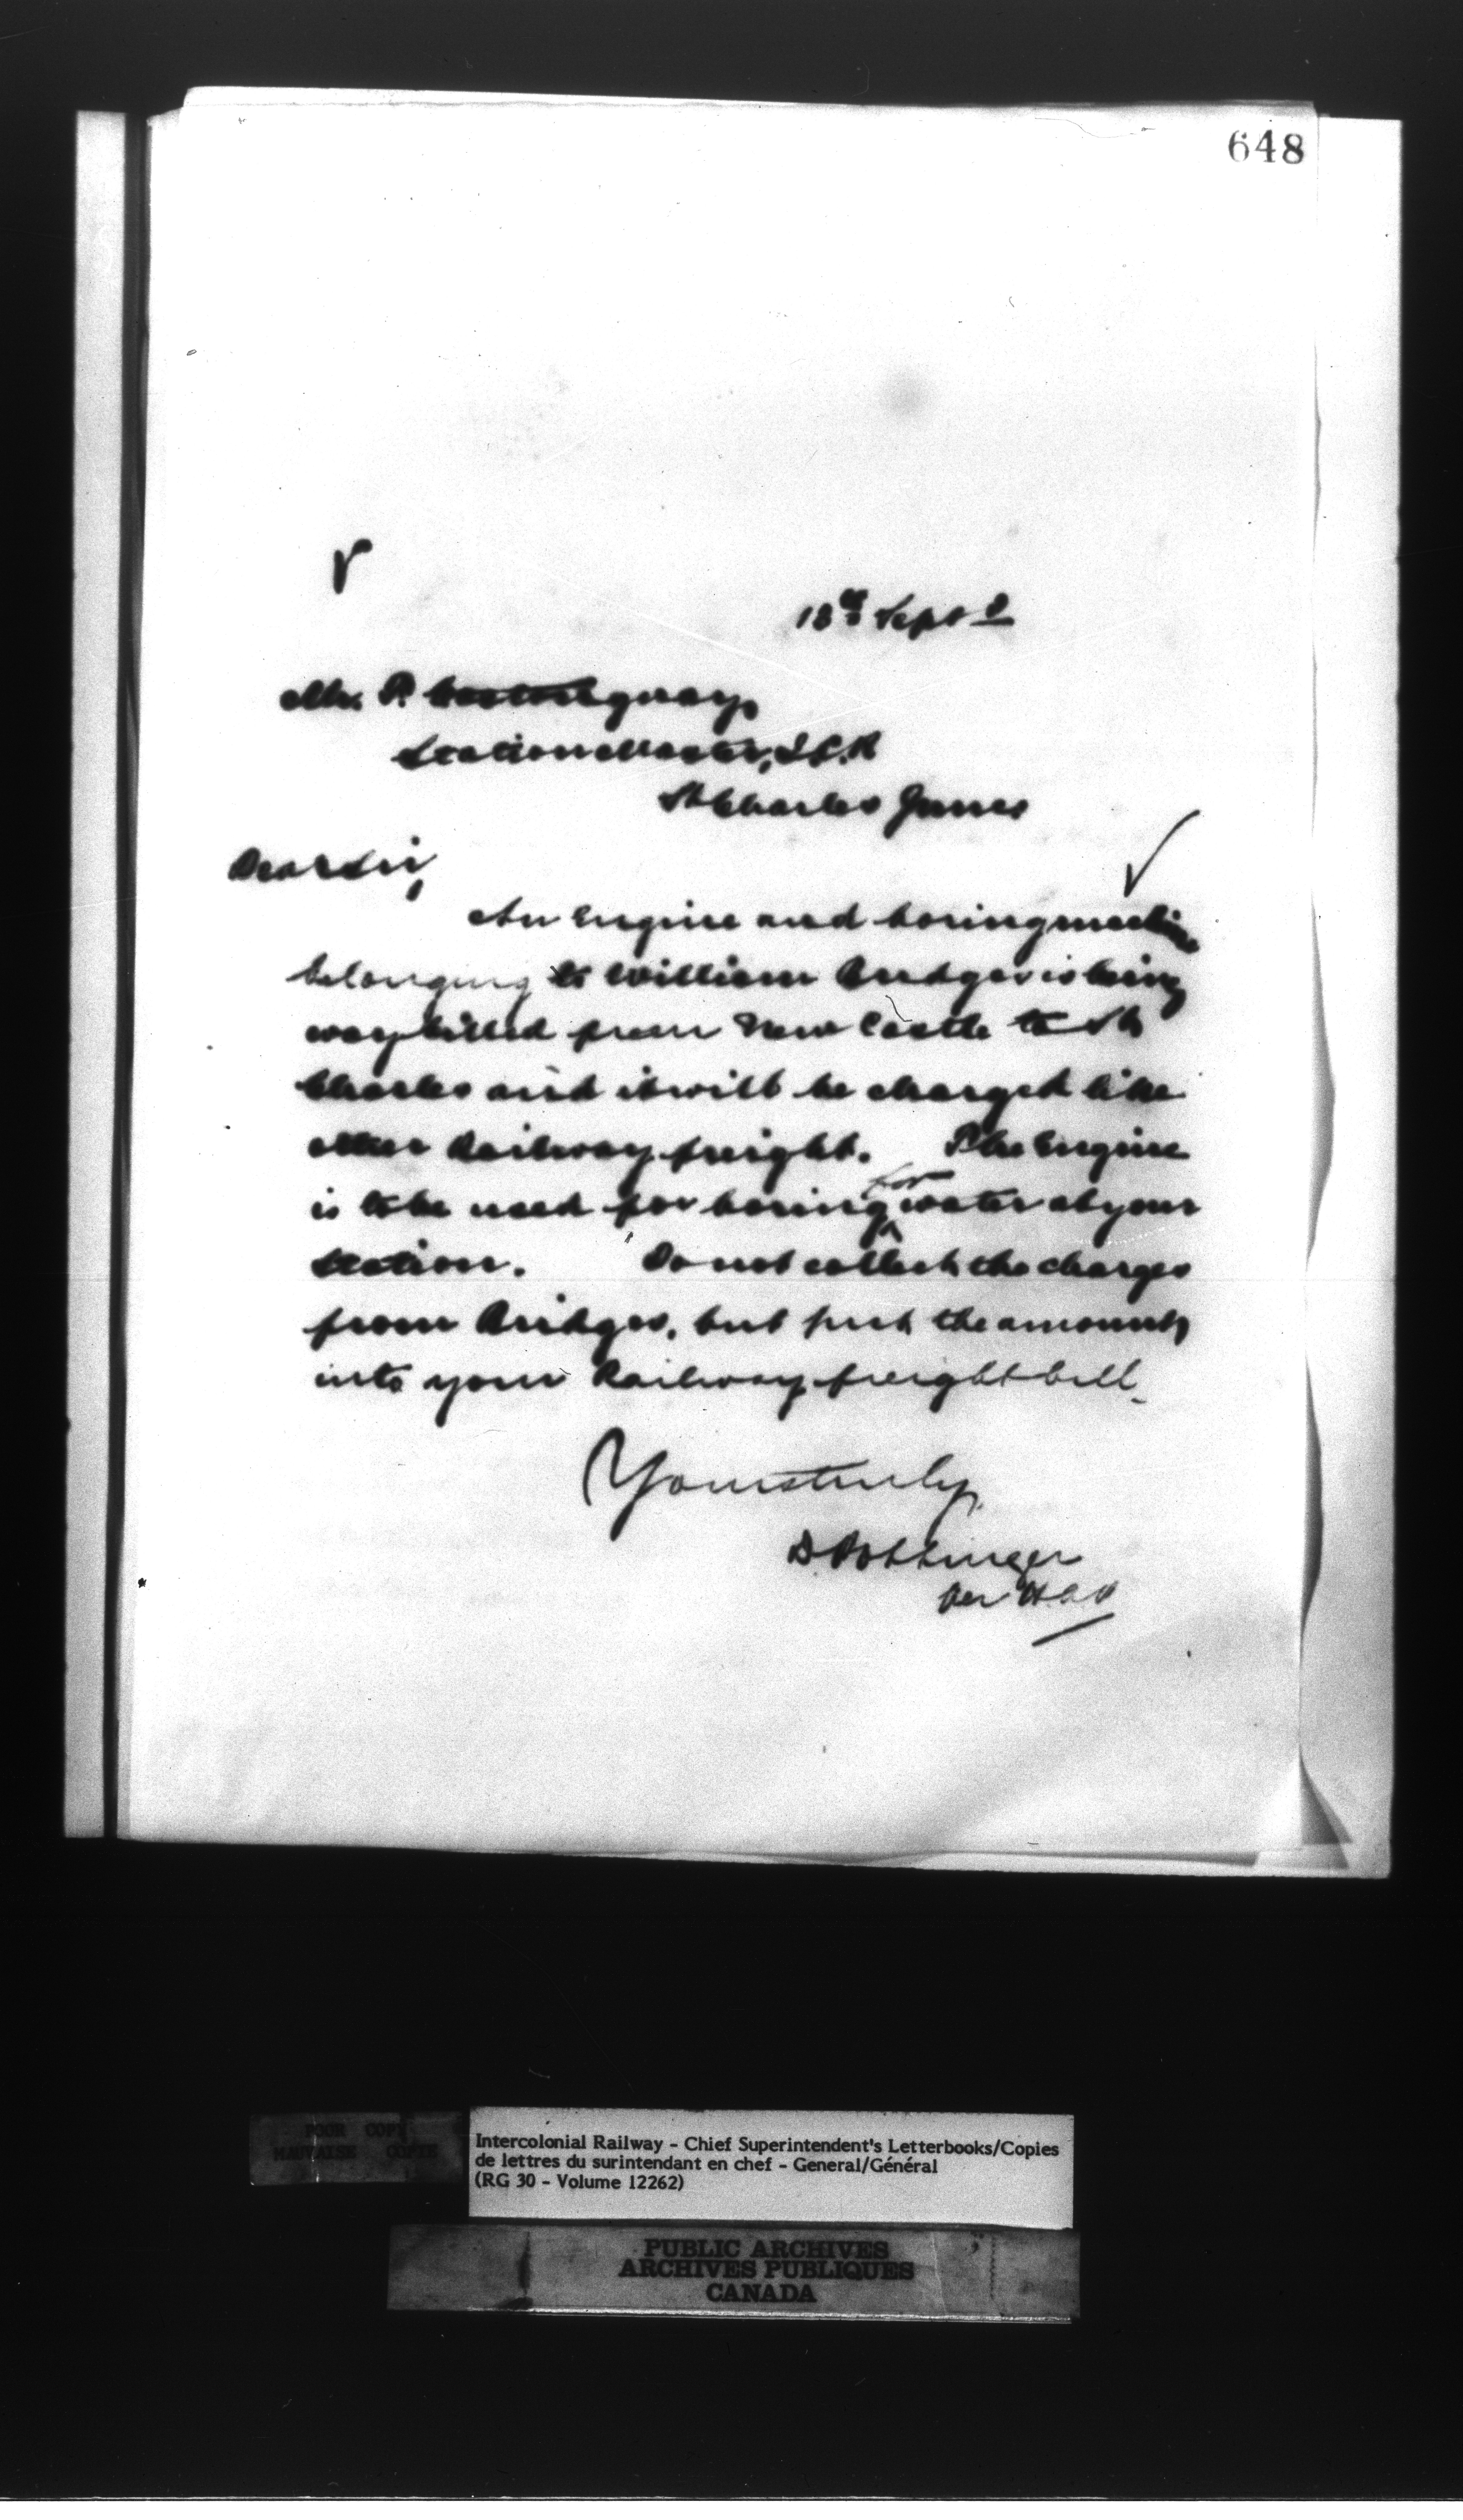 648
18th Sept 2
Mr. P.
Station Master, I.C.R
St Charles Junc
Dear Sir,
An Engine and boring machine
belonging to William Bridges is being
waybilled from New Castle to St
Charles and it will be charged like
other Railway freight. The Engine
is to be used for boring for water at your
station. Do not collect the charges
from Bridges, but put the amount
into your Railway freight bill.
Yours truly,
D. Pottinger
Per
POUR COPI
MAUVAISE COPIE
Intercolonial Railway - Chief Superintendent's Letterbooks/Copies
de lettres du surintendant en chef - General/Général
(RG 30 - Volume 12262)
PUBLIC ARCHIVES
ARCHIVES PUBLIQUES
CANADA